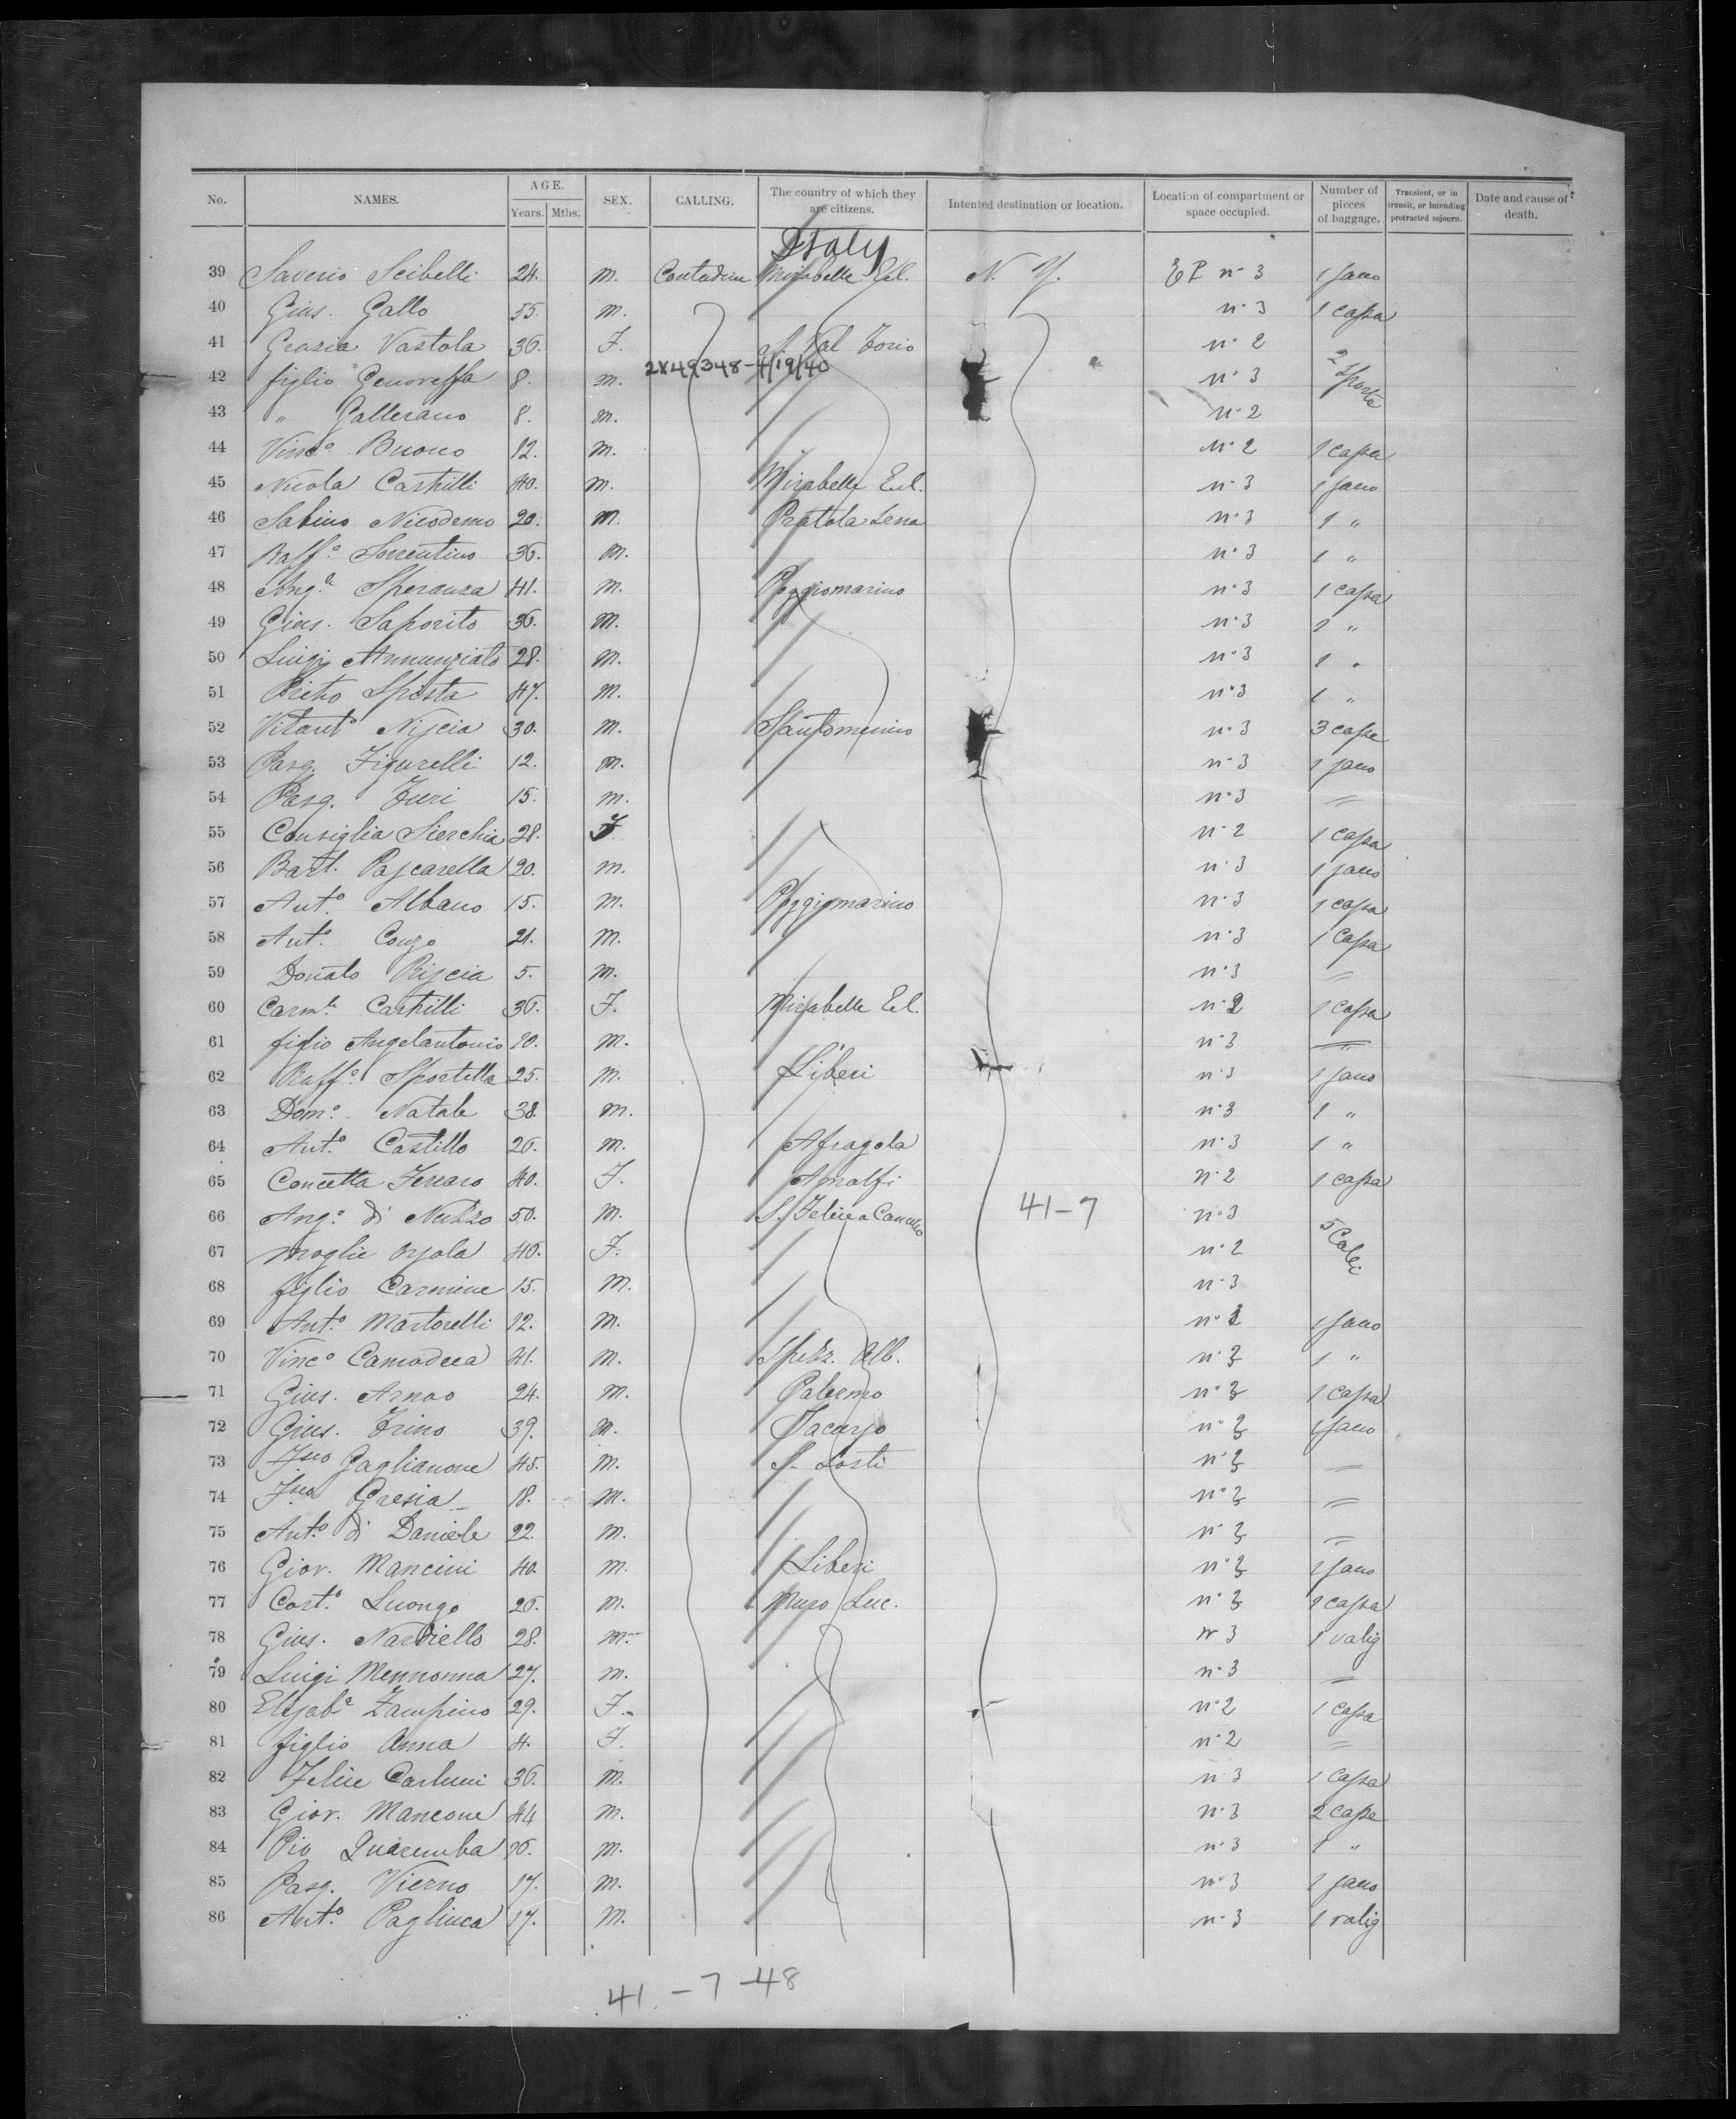 No. NAMES. AGE. Years. Mths. SEX. CALLING. The country of which they are citizens. Intented destination or location. Location of compartment or space occupied. Number of pieces of baggage. Transient, or in transit, or intending protracted sojourn. Date and cause of death.
Italy
39 Saverio Scibelli 24. m. Contadini Mirabella Ecl. N. Y. EP n° 3 1 sacco
40 Gius. Gallo 55. m. n° 3 1 cassa
41 Grazia Vastola 36. F. S. Val Torio n° 2
2X49348-4/19/40
42 figlio Genoveffa 8. m. n° 3 2 Sporte
43 " Gallerano 8. m. n° 2
44 Vinc° Buono 12. m. n° 2 1 cassa
45 Nicola Castrilli 40. m. Mirabella Ecl. n° 3 1 sacco
46 Sabino Nicodemo 20. m. Pratola Serra n° 3 1 "
47 Raff° Sorrentino 36. m. n° 3 1 "
48 Ang° Speranza 41. m. Poggiomarino n° 3 1 cassa
49 Gius. Saporito 36. m. n° 3 1 "
50 Luigi Annunziato 28. m. n° 3 1 "
51 Pietro Sposta 47. m. n° 3 1 "
52 Vitant° Niscia 30. m. Santomenno n° 3 3 casse
53 Pasq. Figurelli 12. m. n° 3 1 sacco
54 Pasq. Turi 15. m. n° 3 =
55 Consiglia Sierchia 28. F. n° 2 1 cassa
56 Bart. Pascarella 20. m. n° 3 1 sacco
57 Ant° Albano 15. m. Poggiomarino n° 3 1 cassa
58 Ant° Conzo 21. m. n° 3 1 cassa
59 Donato Riscia 5. m. n° 3 =
60 Carm° Castrilli 36. F. Mirabella Ecl. n° 2 1 cassa
61 figlio Angelantonio 10. m. n° 3 =
62 Raff° Sportella 25. m. Liberi n° 3 1 sacco
63 Dom° Natale 38. m. n° 3 1 "
64 Ant° Castillo 26. m. Afragola n° 3 1 "
65 Concetta Ferraro 40. F. Amalfi n° 2 1 cassa
66 Ang° di Nuzzo 50. m. S. Felice a Cancello 41-7 n° 3
67 moglie Orsola 46. F. n° 2 5 Colli
68 figlio Carmine 15. m. n° 3
69 Ant° Martorelli 12. m. n° 1 sacco
70 Vinc° Camodeca 41. m. Spezz. Alb. n° 3 1 "
71 Gius. Arnao 24. m. Palermo n° 3 1 cassa
72 Gius. Trino 39. m. Jacurso n° 3 1 sacco
73 F.sco Gaglianone 45. m. S. Sosti n° 3 =
74 F.sco Gresia 18. m. n° 3 =
75 Ant° di Daniele 22. m. n° 3 =
76 Giov. Mancini 40. m. Liberi n° 3 1 sacco
77 Cost° Luongo 26. m. Muro Luc. n° 3 1 cassa
78 Gius. Nardiello 28. m. n° 3 1 valig
79 Luigi Mennonna 27. m. n° 3 =
80 Elisab° Zampino 29. F. n° 2 1 cassa
81 figlio Anna 4. F. n° 2 =
82 Felice Carlucci 36. m. n° 3 1 cassa
83 Giov. Mancone 44 m. n° 3 2 casse
84 Pio Quaremba 16. m. n° 3 1 "
85 Pasq. Vierno 17. m. n° 3 1 sacco
86 Ant° Pagliuca 17. m. n° 3 1 valig
41 - 7 - 48